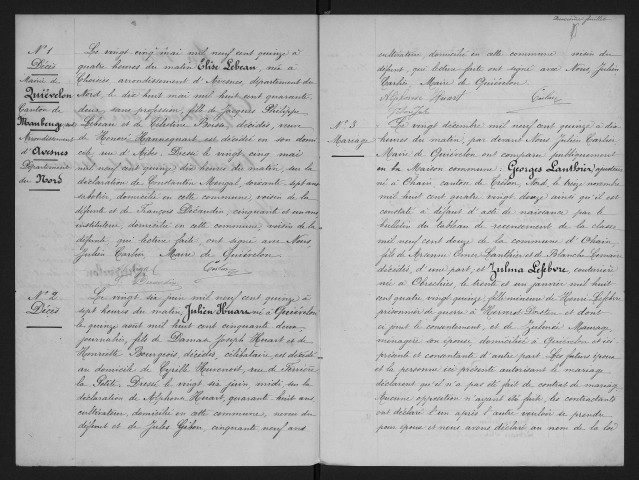 N° 1
Décès
Mairie de
Quiévelon
Canton de
Maubeuge
Arrondissement
d'Avesnes
Département
du Nord
Le vingt cinq mai mil neuf cent quinze à
quatre heures du matin, Elise Lebeau, née à
Choisies arrondissement d'Avesnes, département du
Nord, le dix huit mai mil huit cent quarante
deux, sans profession, fille de Jacques Philippe
Lebeau et de Célestine décédés, veuve
de Henri Hannequart, est décédée en son domi
cile, rue d'Aibes. Dressé le vingt cinq mai
mil neuf cent quinze dix heures du matin, sur la
déclaration de Constantin soixante sept ans
sabotier, domicilié en cette commune, voisin de la
défunte et de François Decandin, cinquante et un ans
instituteur, domicilié en cette commune, voisin de la
défunte, qui lecture faite, ont signé avec Nous
Julien Carlin, Maire de Quiévelon.
N° 2
Décès
Le vingt six juin mil neuf cent quinze à
sept heures du matin, Julien Huart né à Quiévelon
le quinze août mil huit cent cinquante deux
journalier, fils de Joseph Huart et de
Henriette Bourgeois, décédés, célibataire, est décédé
au domicile de Cyrille rue de Ferrière
la Petite. Dressé le vingt six juin midi, sur la
déclaration de Alphonse Huart, quarante huit ans,
cultivateur, domicilié en cette commune, neveu du
défunt et de Jules cinquante neuf ans
cultivateur, domicilié en cette commune, du
défunt, qui lecture faite, ont signé avec Nous Julien
Carlin, Maire de Quiévelon.
Alphonse Huart Carlin
N° 3
Mariage
Le vingt décembre mil neuf cent quinze à dix
heures du matin, par devant Nous Julien Carlin
Maire de Quiévelon ont comparu publiquement
en la Maison commune: Georges Lanthoir, ajusteur
né à Ohain canton de Trélon, Nord, le treize novembre
mil huit cent quatre vingt douze ainsi qu'il est
constaté à défaut d'acte de naissance par le
bulletin du tableau de recensement de la classe
mil neuf cent douze de la commune d'Ohain
fils de Arsène Omer Lanthoir et de Blanche
décédés, d'une part; et Zulma Lefebvre, couturière
née à Obrechies, le trente et un janvier mil huit
cent quatre vingt quinze, fille mineure de Henri Lefebvre
prisonnier de guerre à et dont
le consentement, et de Zulmée
ménagère son épouse, domiciliée à Quiévelon et ici
présente et consentante d'autre part. Les futurs époux
et la personne ici présente autorisant le mariage
déclarent qu'il n'a pas été fait de contrat de mariage
Aucune opposition n'ayant été faite, les contractants
ont déclaré l'un après l'autre vouloir se prendre
pour époux et nous avons déclaré au nom de la loi